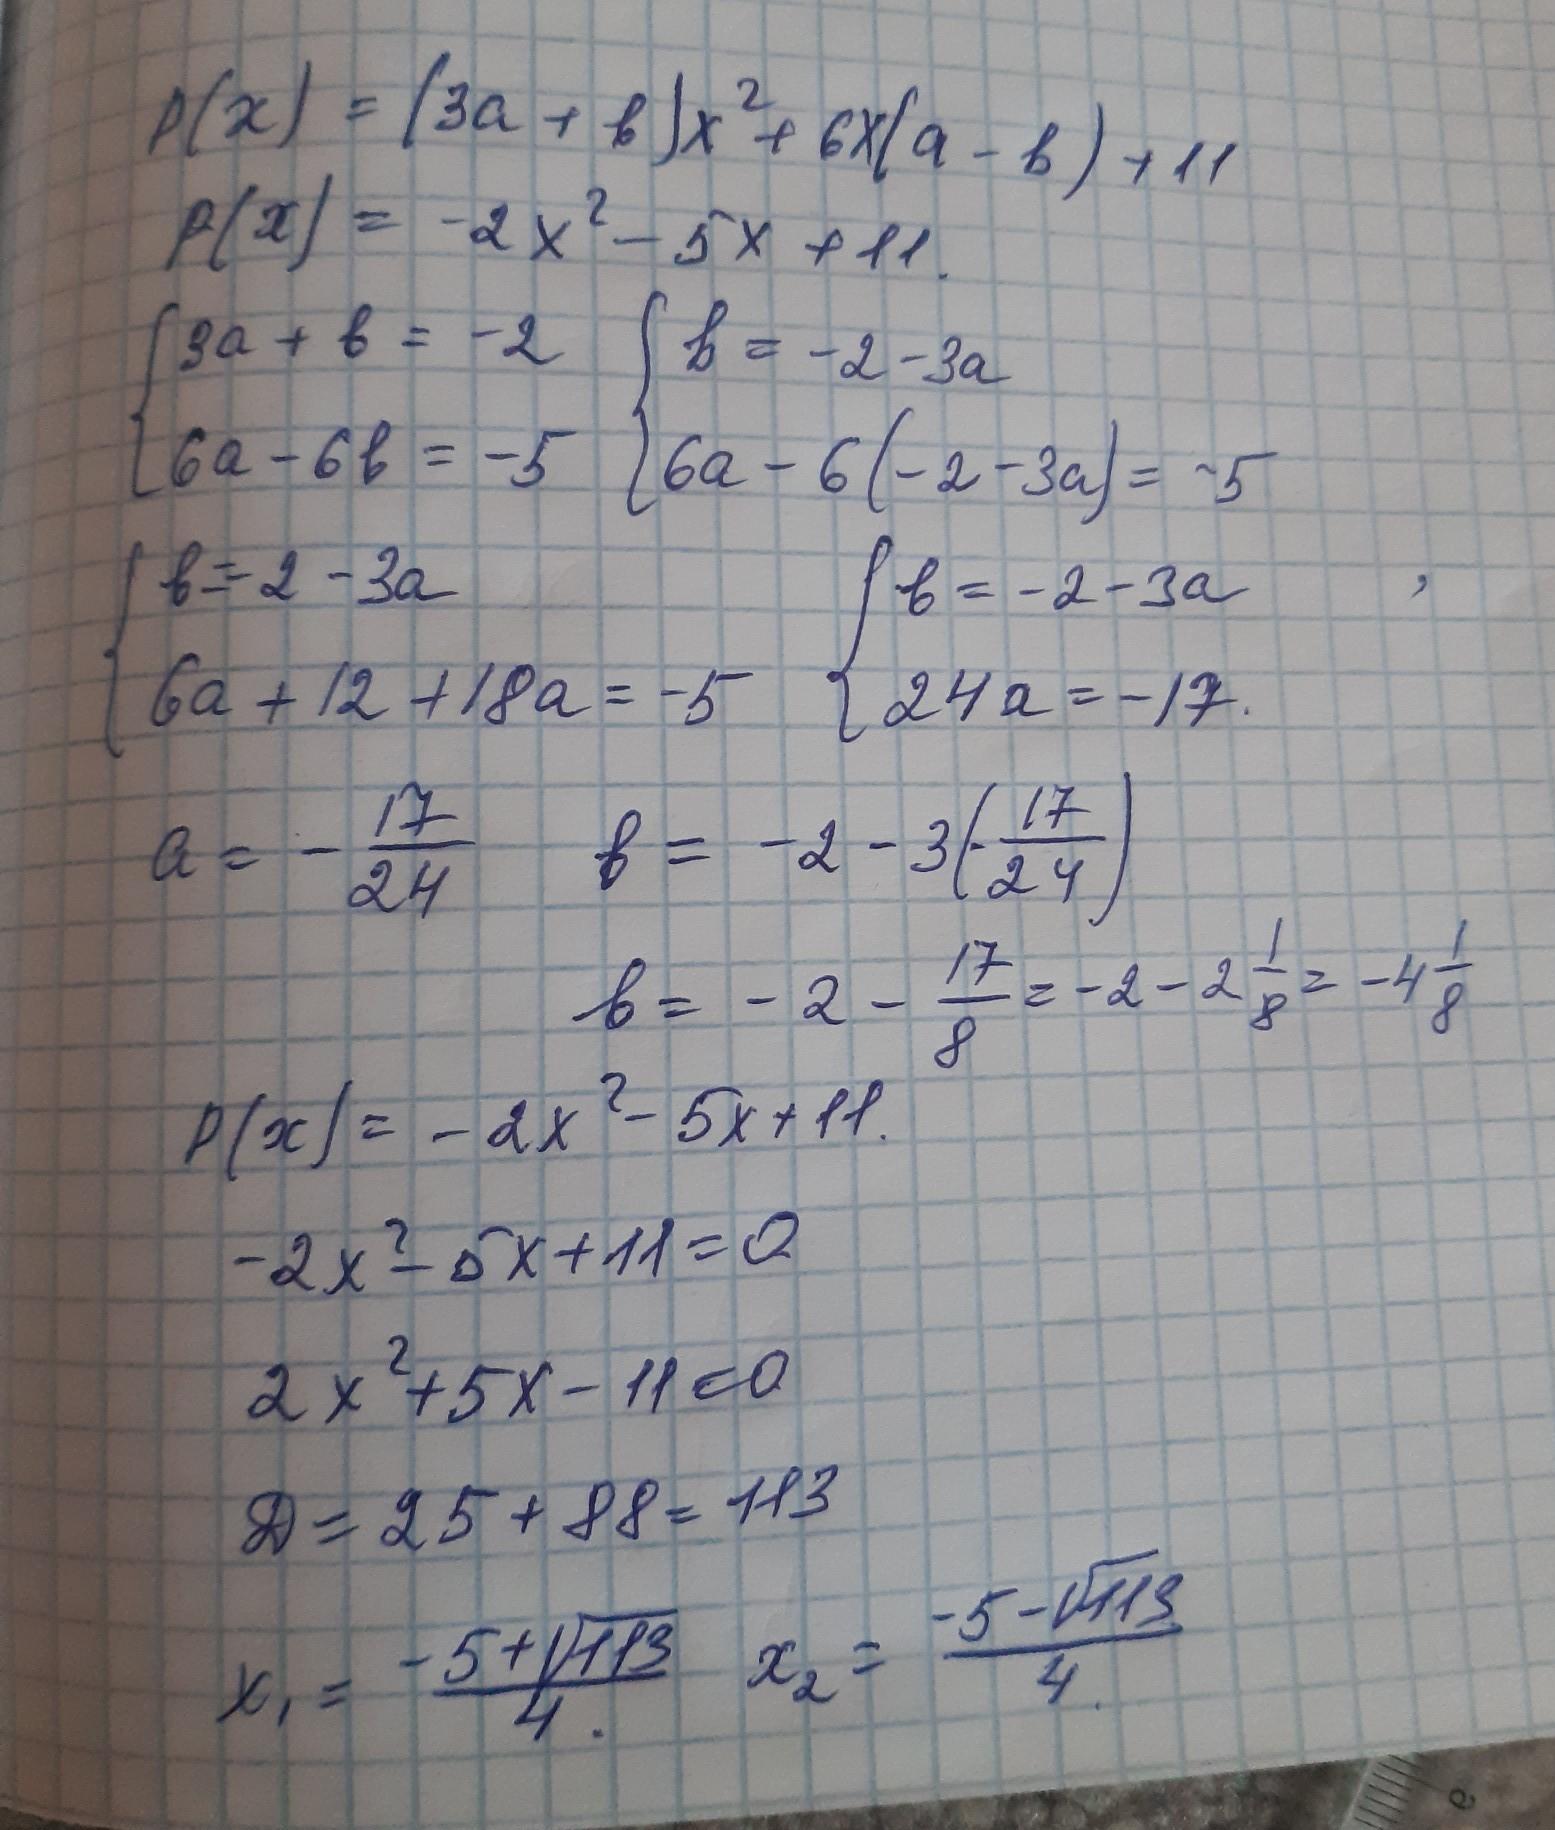 P(x) = (3a + b)x² + 6x(a - b) + 11
P(x) = -2x² - 5x + 11.
{ 3a + b = -2 { b = -2 - 3a
6a - 6b = -5 6a - 6(-2 - 3a) = -5
{ b = -2 - 3a { b = -2 - 3a ,
6a + 12 + 18a = -5 24a = -17.
a = - 17/24 b = -2 - 3(- 17/24)
b = -2 - 17/8 = -2 - 2 1/8 = -4 1/8
P(x) = -2x² - 5x + 11.
-2x² - 5x + 11 = 0
2x² + 5x - 11 = 0
D = 25 + 88 = 113
x₁ = (-5 + √113)/4. x₂ = (-5 - √113)/4.